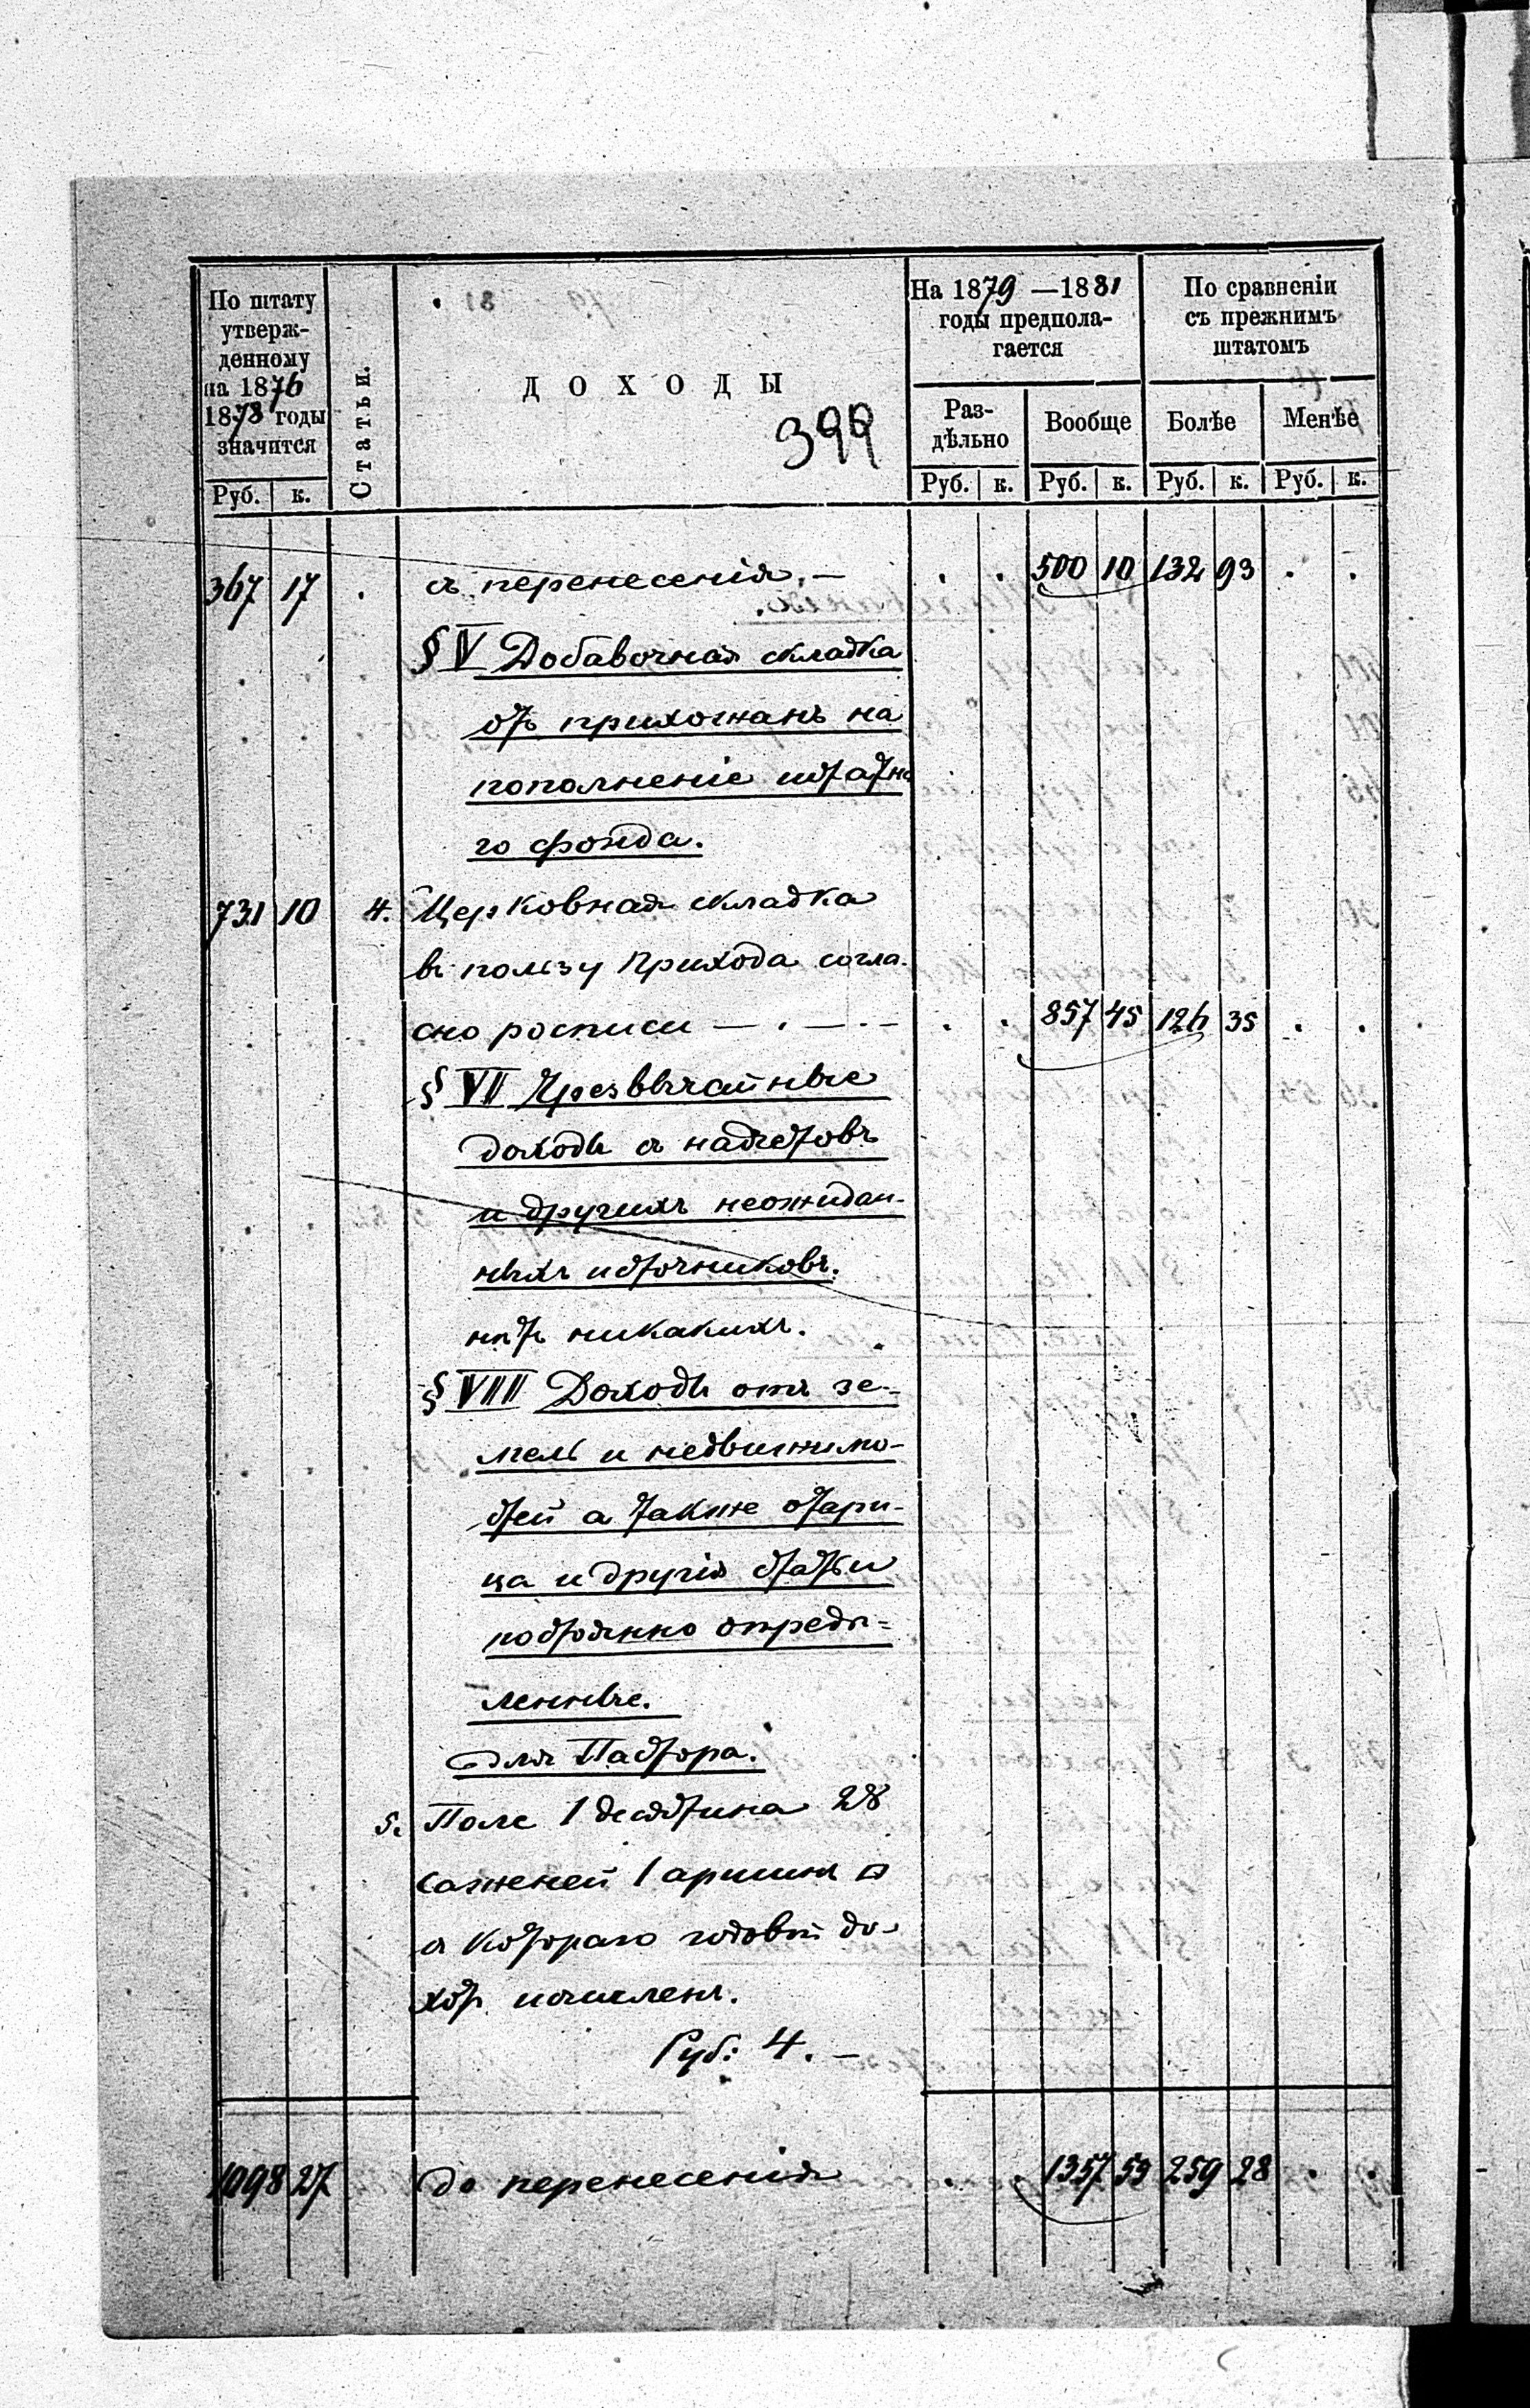 По штату
утверж-
денному
на 1876
1878 годы
значится
Руб. к.
Статьи.
ДОХОДЫ
399
На 1879 —1881
годы предпола-
гается
Раз-
дѣльно
Вообще
Руб. к. Руб. к.
По сравненіи
съ прежнимъ
штатомъ
Болѣе
Менѣе
Руб. к. Руб. к.
367 17 . съ перенесенія. — . . 500 10 132 93 . .
§ V Добавочная складка
отъ прихожанъ на
пополненіе штатна
го фонда.
731 10 4. Церковная складка
въ пользу Прихода согла-
сно росписи — . — . – . . 857 45 126 35 . .
§ VII Чрезвычайные
доходы съ начетовъ
и другихъ неожидан-
ныхъ источниковъ.
нѣтъ никакихъ.
§ VIII Доходы отъ зе-
мель и недвижимо-
стей а также отари-
ца и другія статьи
постоянно опредѣ-
ленные.
Для Пастора.
5. Поле 1 десятина 28
саженей 1 аршинъ □
съ котораго годовой до-
ходъ исчисленъ.
Руб: 4. –
1098 27 до перенесенія . . 1357 53 259 28 . .